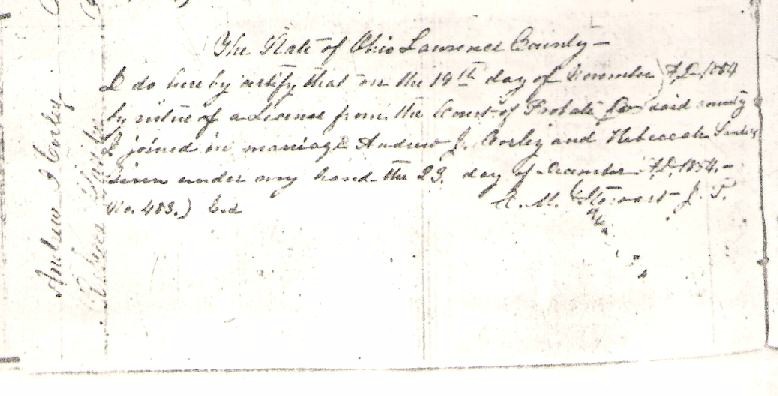 The State of Ohio Lawrence County -
I do hereby certify that on the 19th day of December A.D. 1854
by virtue of a License from the Court of Probate for said county
I joined in marriage Andrew J. Corley and Rebecca
Given under my hand the 23. day of December A.D. 1854. -
No. 483.) A. M. Stewart J. P.
Andrew J Corley